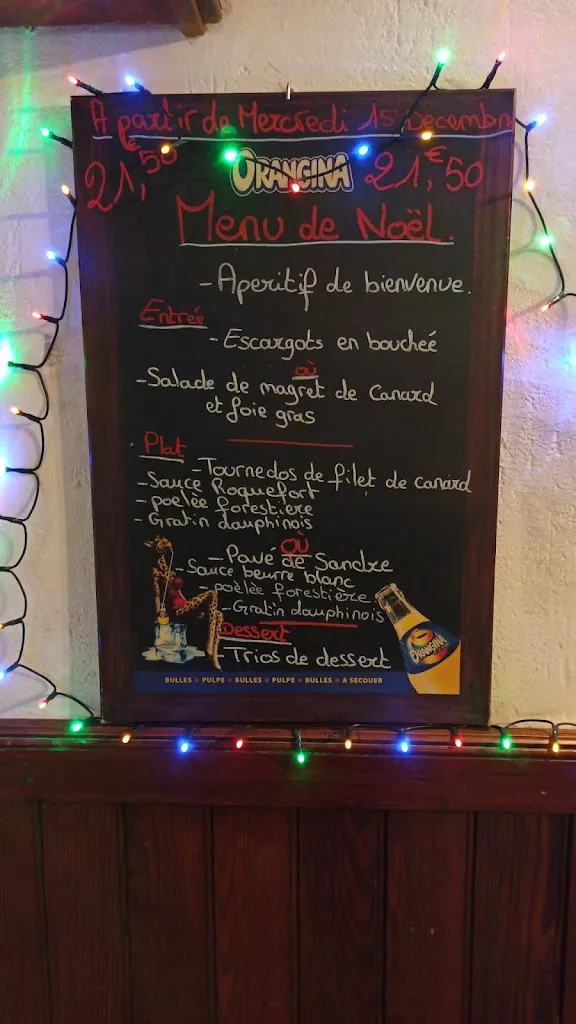 A partir de Mercredi 15 Decembre
21,€50 ORANGINA 21,€50
Menu de Noël.
- Aperitif de bienvenue.
Entrée
- Escargots en boucheé
où
- Salade de magret de Canard
et foie gras
Plat
- Tournedos de filet de canard
- Sauce Roquefort
- poelèe forestière
- Gratin dauphinois
OÙ
- Pavé de Sandre
- Sauce beurre blanc
- poèlée forestière
- Gratin dauphinois
Dessert
- Trios de dessert
ORANGINA
BULLES ★ PULPE ★ BULLES ★ PULPE ★ BULLES ★ A SECOUER